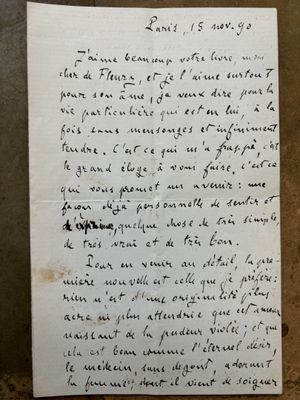 Paris, 15 nov. 90
J'aime beaucoup votre livre, mon
cher de Fleury, et je l'aime surtout
pour son âme, je veux dire pour la
vie particulière qui est en lui, à la
fois sans mensonges et infiniment
tendre. C'est ce qui m'a frappé, c'est
le grand éloge à vous faire, c'est ce
qui vous promet un avenir: une
façon déjà personnelle de sentir et
d'exprimer, quelque chose de très simple,
de très vrai et de très bon.
Pour en venir au détail, la pre-
mière nouvelle est celle que je préfère:
rien n'est d'une originalité plus
acre ni plus attendrie que cet amour
naissant de la pudeur violée; et que
cela est beau comme l'éternel désir,
le médecin, sans dégoût, adorant
la femme dont il vient de soigner